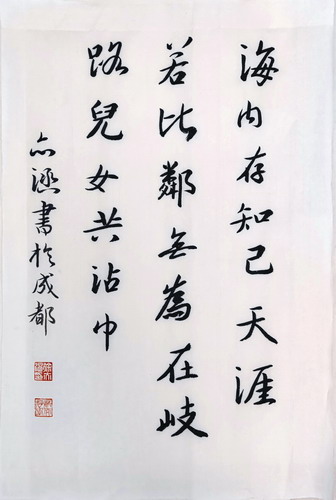 海内存知己天涯
若比鄰無為在岐
路兒女共沾巾
亦涵書於成都